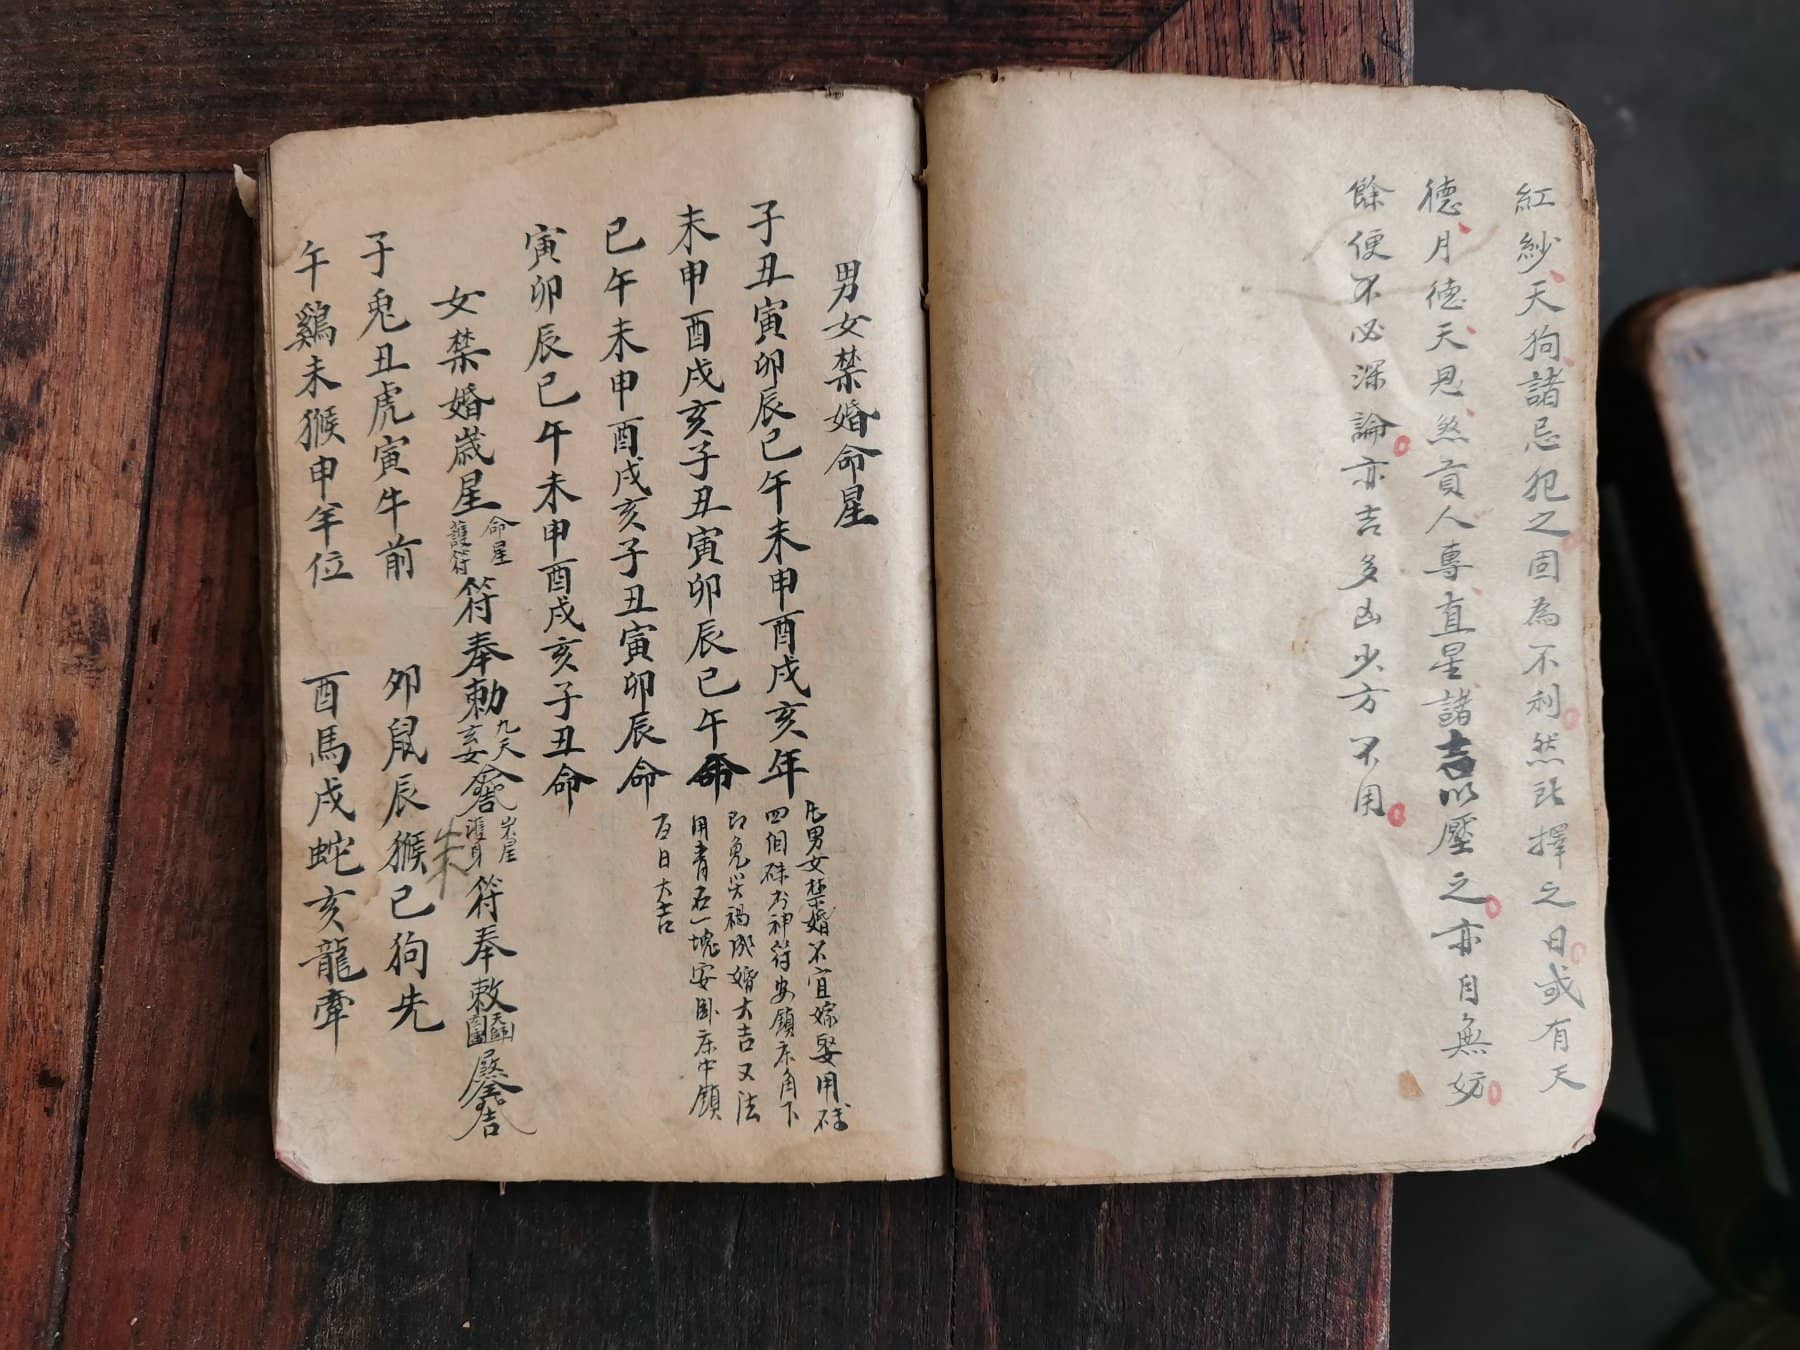 紅紗天狗諸忌犯之固為不利然既擇之日或有天
德月德天恩煞貢人專直星諸吉以壓之亦自無妨
餘便不必深論亦吉多凶少方不用
男女禁婚命星
子丑寅卯辰巳午未申酉戌亥年
未申酉戌亥子丑寅卯辰巳午命
巳午未申酉戌亥子丑寅卯辰命
寅卯辰巳午未申酉戌亥子丑命
凡男女禁婚不宜嫁娶用硃
四個硃書神符安鎮床角下
即免災禍成婚大吉又法
用青石一塊安臥床中鎮
百日大吉
女禁婚歲星
命星
護符
符奉勅
九天
玄女
護身
符奉敕
子兔丑虎寅牛前 卯鼠辰猴巳狗先
午鷄未猴申羊位 酉馬戌蛇亥龍牽